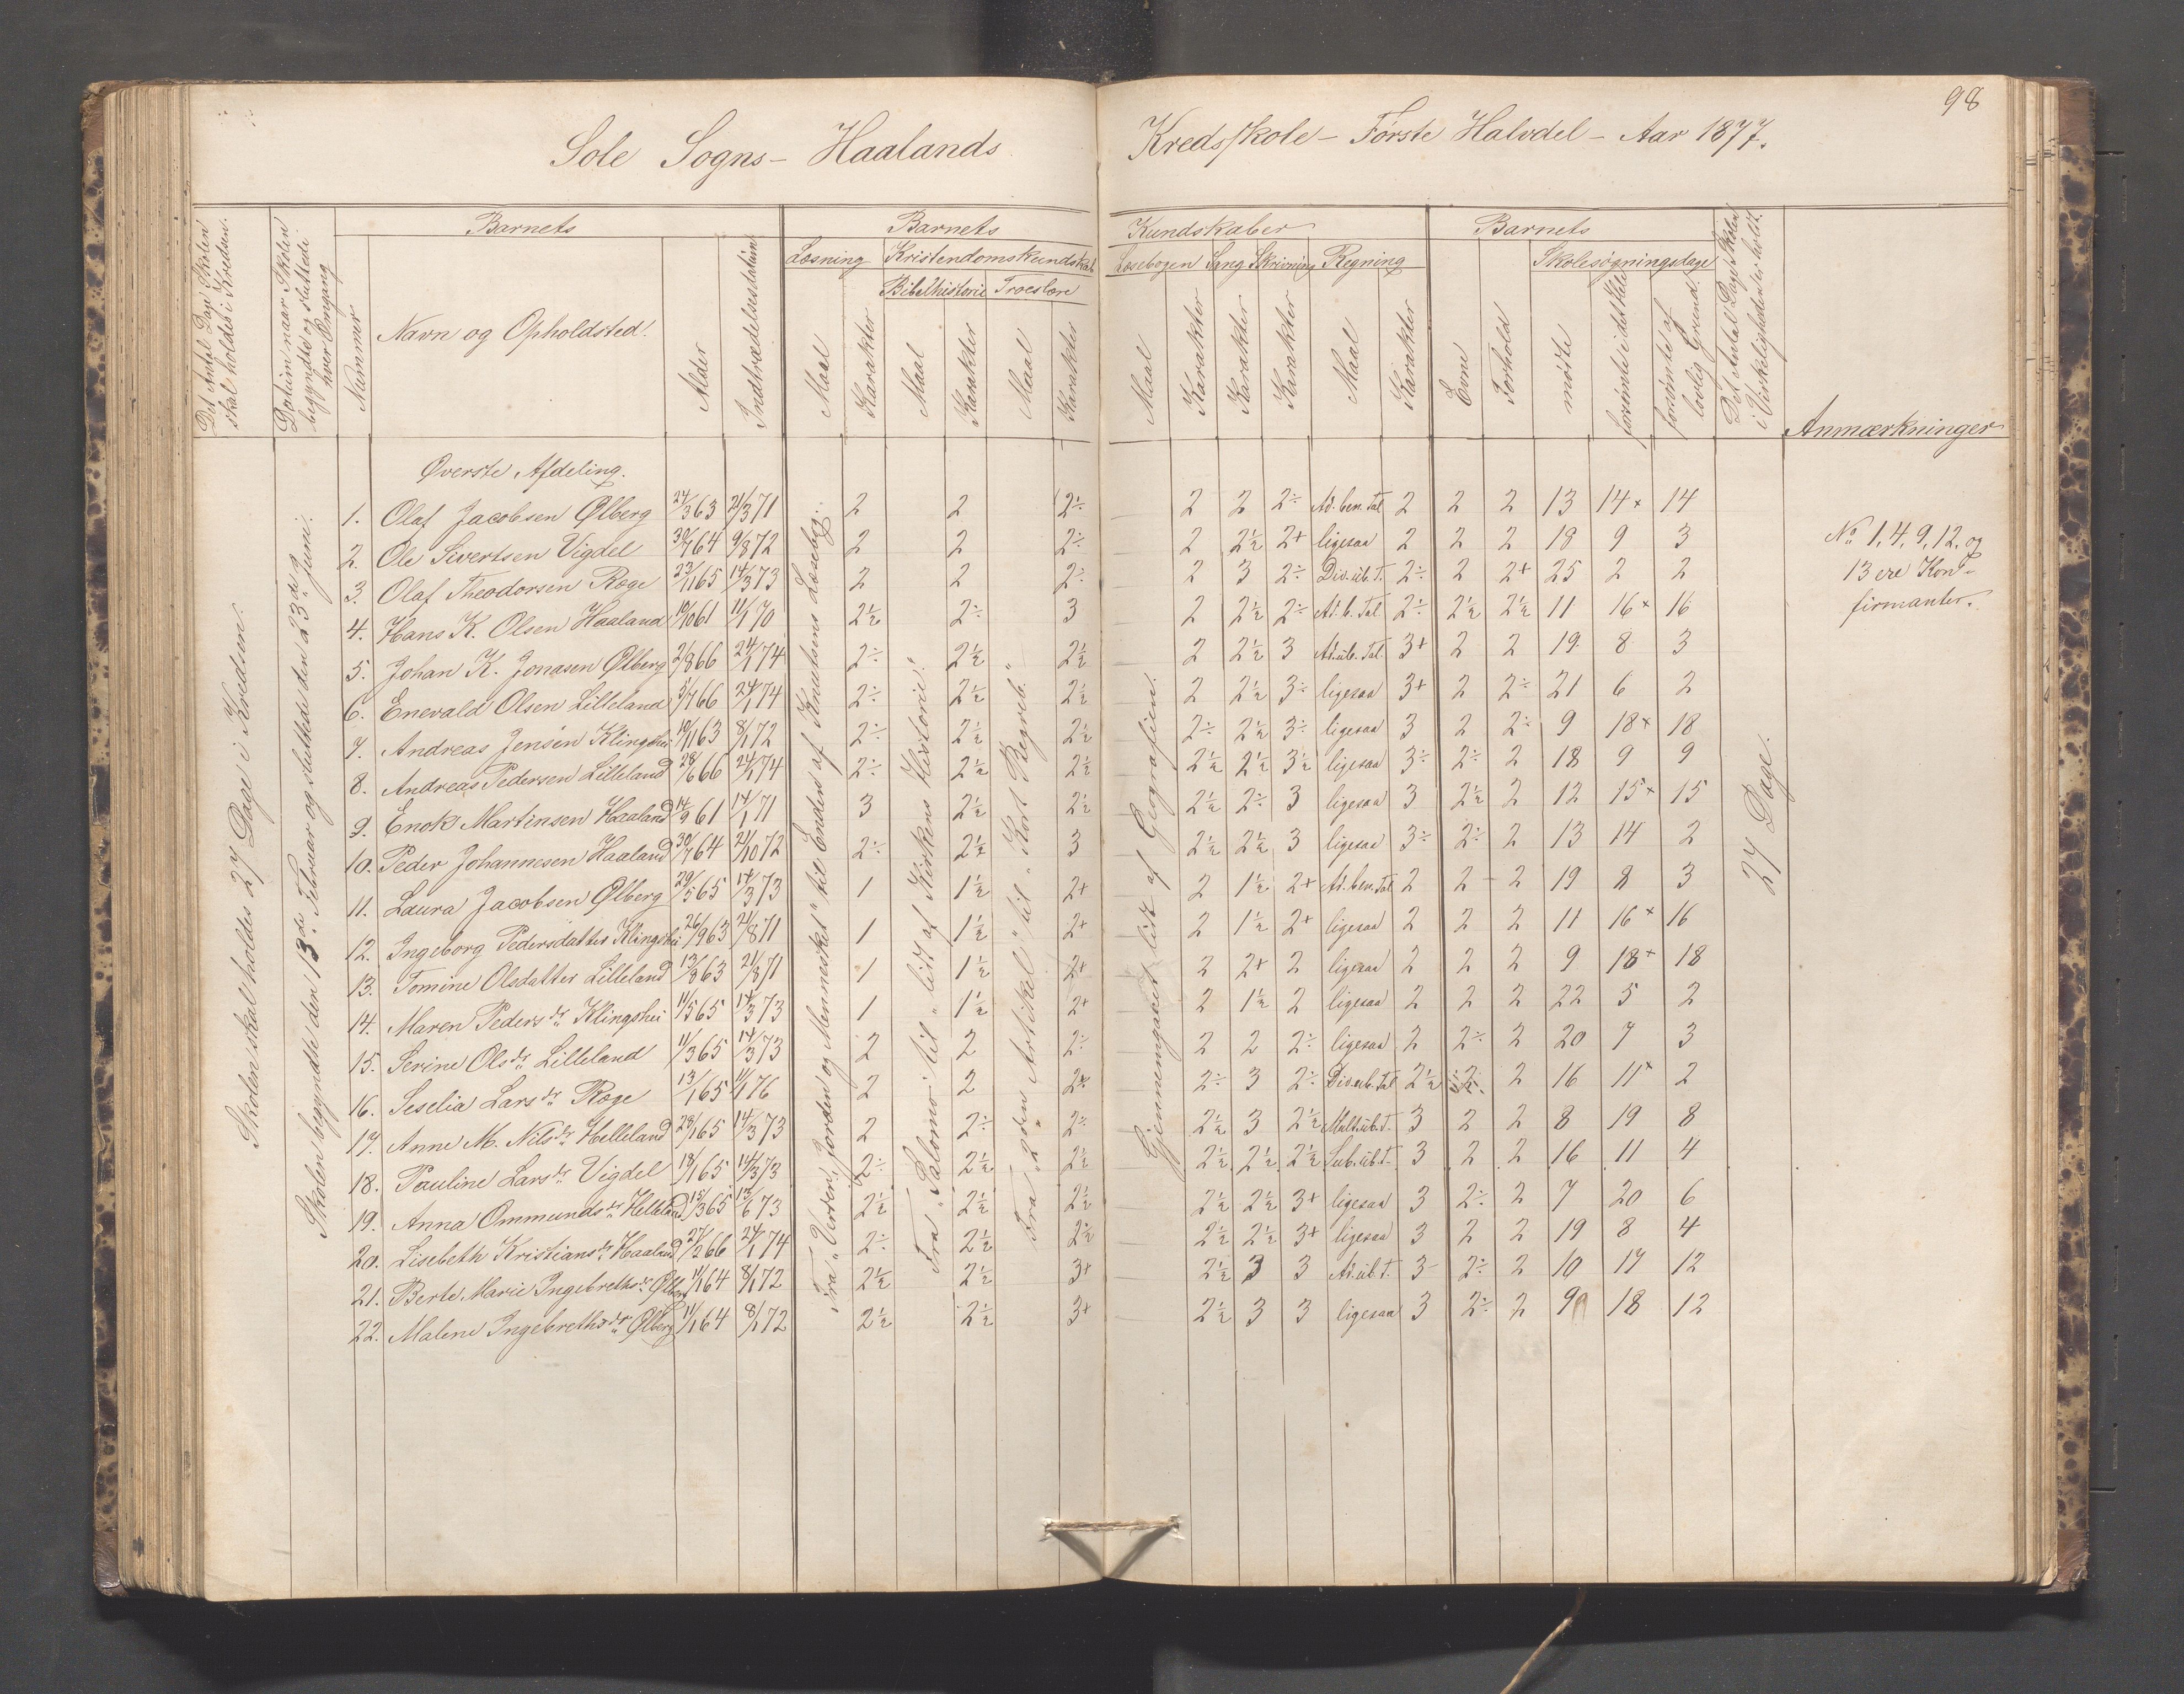 98
Sole Sogns - Haalands Kredsskole - Første Halvdel - Aar 1877.
Det Antal Dage Skolen skal holdes i Kredsen.
Datum naar Skolen begyndte og sluttede i hver Omgang
Barnets
Nummer
Navn og Opholdsted.
Alder
Indtrædelsesdatum
Barnets Kundskaber
Læsning
Kristendomskundskab
Bibelhistorie
Troeslære
Maal
Karakter
Maal
Karakter
Maal
Karakter
Læsebogen
Sang
Skrivning
Regning
Maal
Karakter
Karakter
Karakter
Maal
Karakter
Barnets
Evne
Forhold
Skolesøgningsdage
mødte
forsømte i det Hele
forsømte af lovlig Grund.
Det Antal Dage Skolen i Virkeligheden er holdt.
Anmærkninger
Skolen skal holdes 27 Dage i Kredsen.
Skolen begyndte den 13de Februar og sluttede den 23de Juni.
Fra "Verden, Jorden og Mennesket" til Enden af Knudsens Læsebog.
Fra "Salomo" til "lidt af Kirkens Historie."
Fra "2den Artikel" til "Kort Begreb."
Gjennemgaaet lidt af Geografien.
27 Dage.
Øverste Afdeling.
1. Olaf Jacobsen Ølberg 24/3 63 21/3 71 2 2 2÷ 2 2 2÷ Ad. ben. Tal 2 2 2 13 14× 14
2. Ole Sivertsen Vigdel 30/7 64 9/8 72 2 2 2÷ 2 2½ 2+ ligesaa 2 2 2 18 9 3
3. Olaf Theodorsen Røge 23/1 65 14/3 73 2 2 2÷ 2 3 2÷ Div. üb. T. 2÷ 2 2+ 25 2 2
4. Hans K. Olsen Haaland 10/10 61 11/1 70 2½ 2÷ 3 2 2½ 2÷ Ad. b. Tal 2÷ 2½ 2½ 11 16× 16
5. Johan K. Jonasen Ølberg 2/8 66 24/1 74 2÷ 2½ 2½ 2 2½ 3 Ad. üb. Tal. 3+ 2 2 19 8 3
6. Enevald Olsen Lilleland 5/7 66 24/1 74 2÷ 2½ 2½ 2 2½ 3÷ ligesaa 3+ 2 2÷ 21 6 2
7. Andreas Jensen Klingshei 10/1 63 8/1 72 2÷ 2½ 2½ 2÷ 2½ 3÷ ligesaa 3 2 2÷ 9 18× 18
8. Andreas Pedersen Lilleland 28/6 66 24/1 74 2÷ 2½ 2½ 2½ 2½ 3½ ligesaa 3÷ 2÷ 2 18 9 9
9. Enok Martinsen Haaland 14/9 61 14/1 71 3 2½ 2½ 2½ 2÷ 3 ligesaa 3 2½ 2 12 15× 15
10. Peder Johannesen Haaland 30/7 64 21/10 72 2÷ 2½ 3 2½ 2½ 3 ligesaa 3÷ 2÷ 2 13 14 2
11. Laura Jacobsen Ølberg 29/5 65 14/3 73 1 1½ 2+ 2 1½ 2+ Ad. ben. Tal 2 2 2 19 8 3
12. Ingeborg Pedersdatter Klingshei 26/9 63 21/8 71 1 1½ 2+ 2 1½ 2+ ligesaa 2 2 2 11 16× 16
13. Tomine Olsdatter Lilleland 13/8 63 21/8 71 1 1½ 2+ 2 2+ 2 ligesaa 2 2 2 9 18× 18
14. Maren Pedersdr Klingshei 11/5 65 14/3 73 1 1½ 2+ 2 1½ 2 ligesaa 2 2 2 22 5 2
15. Serine Olsdr Lilleland 11/3 65 14/3 73 2 2 2÷ 2 2 2÷ ligesaa 2 2÷ 2 20 7 3
16. Seselia Larsdr Røge 13/1 65 11/1 76 2 2 2÷ 2÷ 3 2÷ Div. üb. Tal 2½ 2÷ 2 16 11× 2
17. Anne M. Nilsdr Helleland 29/1 65 14/3 73 2 2÷ 2÷ 2½ 3 2½ Mult. üb. T. 3 2 2 8 19 8
18. Pauline Larsdr Vigdel 18/1 65 14/3 73 2÷ 2½ 2½ 2½ 2½ 2½ Sub. üb. T. 3 2 2 16 11 4
19. Anna Ommundsdr Helleland 15/3 65 13/6 73 2½ 2½ 2½ 2½ 2½ 3+ ligesaa 3 2÷ 2 7 20 6
20. Lisebeth Kristiansdr Haaland 27/2 66 24/1 74 2÷ 2½ 2½ 2½ 2½ 3+ ligesaa 3 2 2 19 8 4
21. Berte Marie Ingebrethsdr Ølberg 11/1 64 8/1 72 2½ 2½ 3+ 2½ 3 3 Ad. üb. T. 3 2÷ 2 10 17 12
22. Malene Ingebrethsdr Ølberg 11/1 64 8/1 72 2½ 2½ 3+ 2½ 3 3 ligesaa 3 2÷ 2 9 18 12
No 1, 4, 9, 12, og
13 ere Kon-
firmanter.